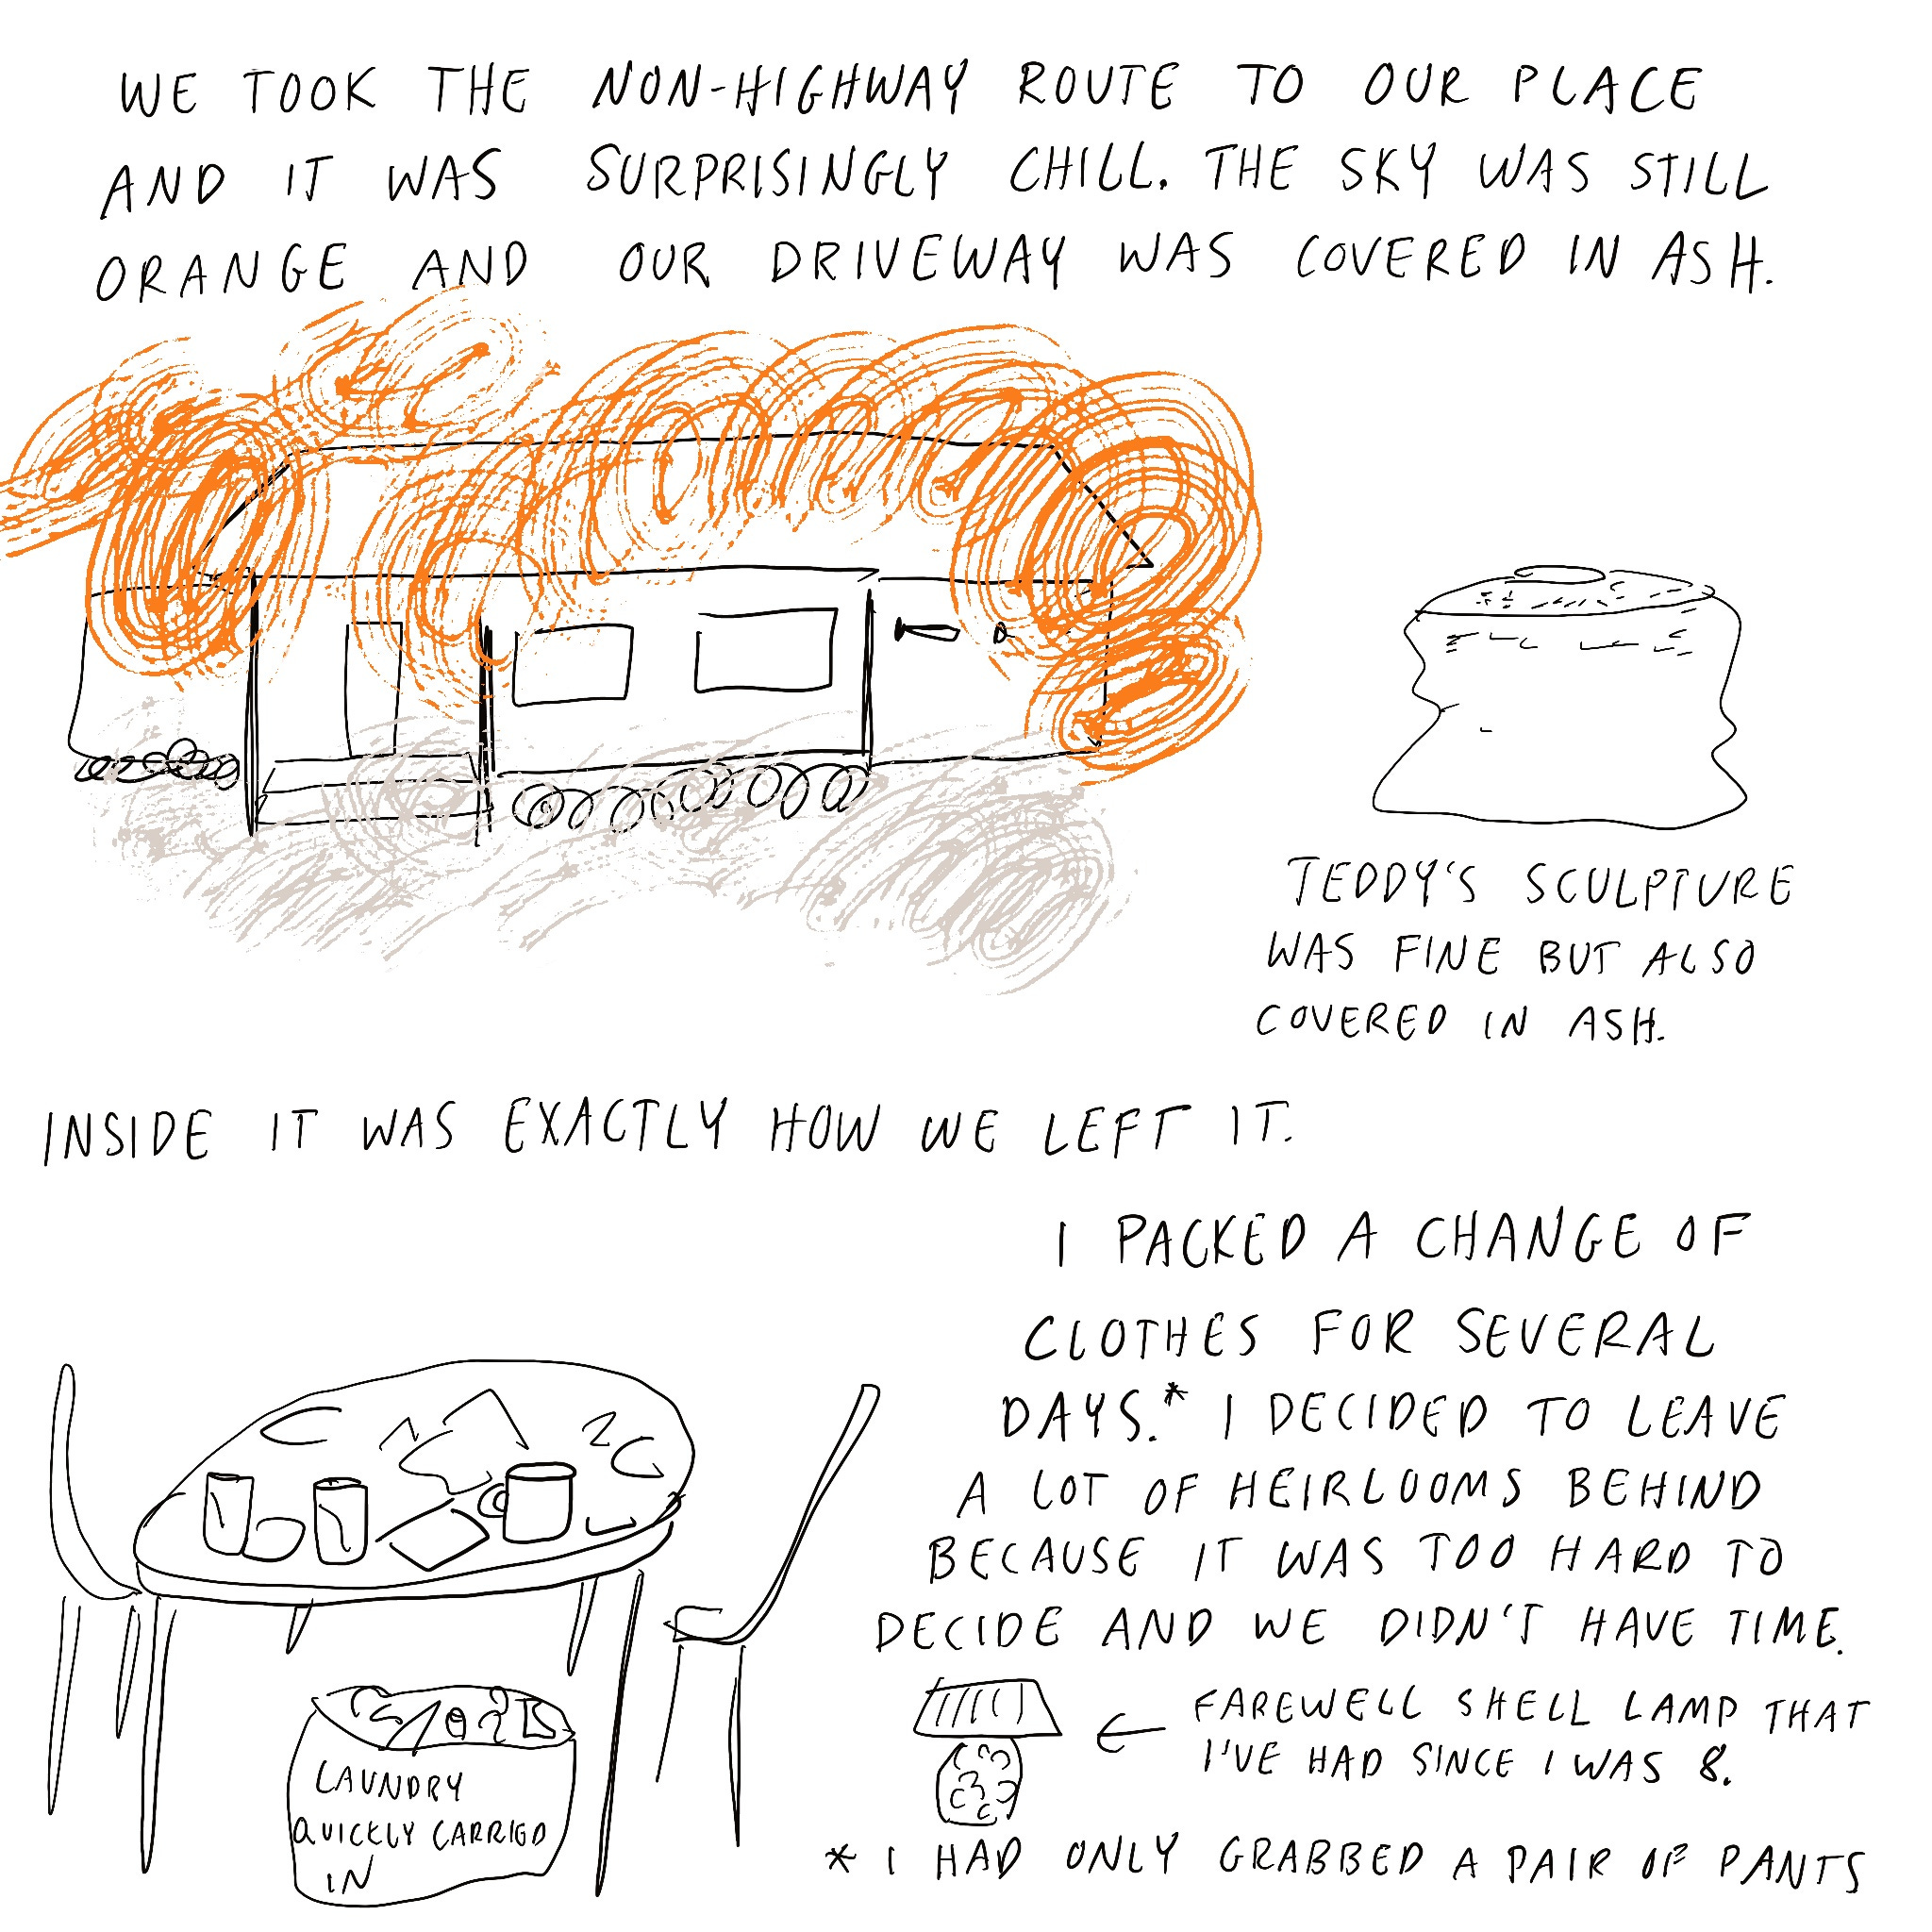 WE TOOK THE NON-HIGHWAY ROUTE TO OUR PLACE
AND IT WAS SURPRISINGLY CHILL. THE SKY WAS STILL
ORANGE AND OUR DRIVEWAY WAS COVERED IN ASH.
TEDDY'S SCULPTURE
WAS FINE BUT ALSO
COVERED IN ASH.
INSIDE IT WAS EXACTLY HOW WE LEFT IT.
I PACKED A CHANGE OF
CLOTHES FOR SEVERAL
DAYS.* I DECIDED TO LEAVE
A LOT OF HEIRLOOMS BEHIND
BECAUSE IT WAS TOO HARD TO
DECIDE AND WE DIDN'T HAVE TIME.
LAUNDRY
QUICKLY CARRIED
IN
FAREWELL SHELL LAMP THAT
I'VE HAD SINCE I WAS 8.
* I HAD ONLY GRABBED A PAIR OF PANTS